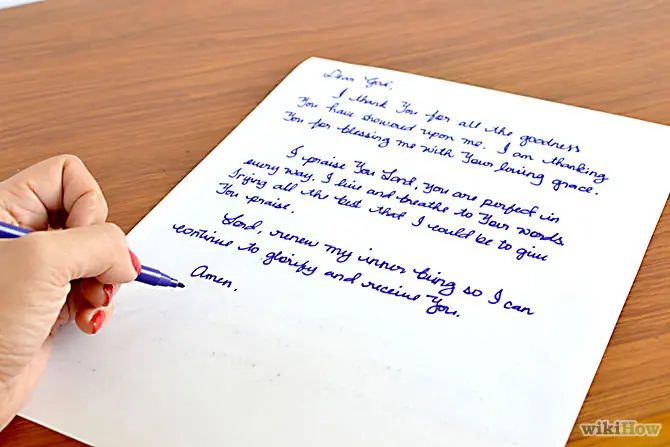 Dear God,
I thank You for all the goodness
You have showered upon me. I am thanking
You for blessing me with Your loving grace.
I praise You Lord, you are perfect in
every way. I live and breathe to Your words
Trying all the best that I could be to give
You praise.
Lord, renew my inner being so I can
continue to glorify and receive You.
Amen.
wikiHow